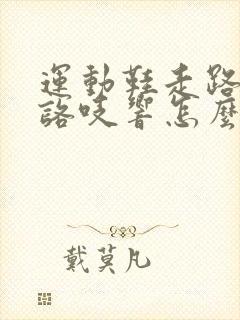 運動鞋走路
詻吱響怎麼
戴莫凡